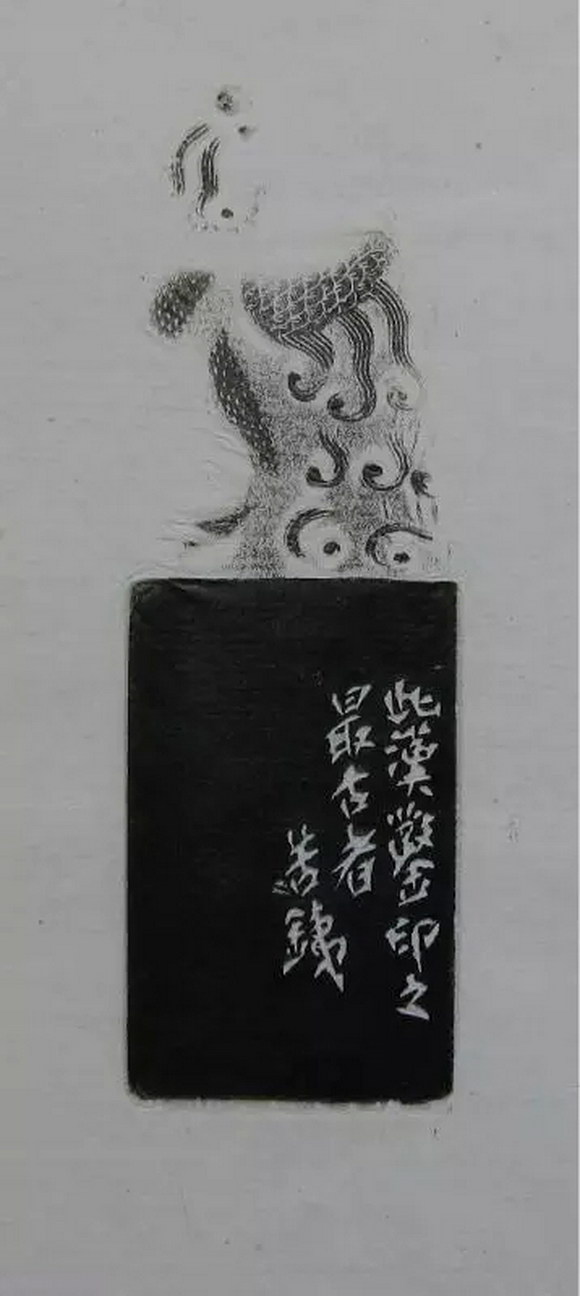 此漢鑿印之
最古者
苦銕